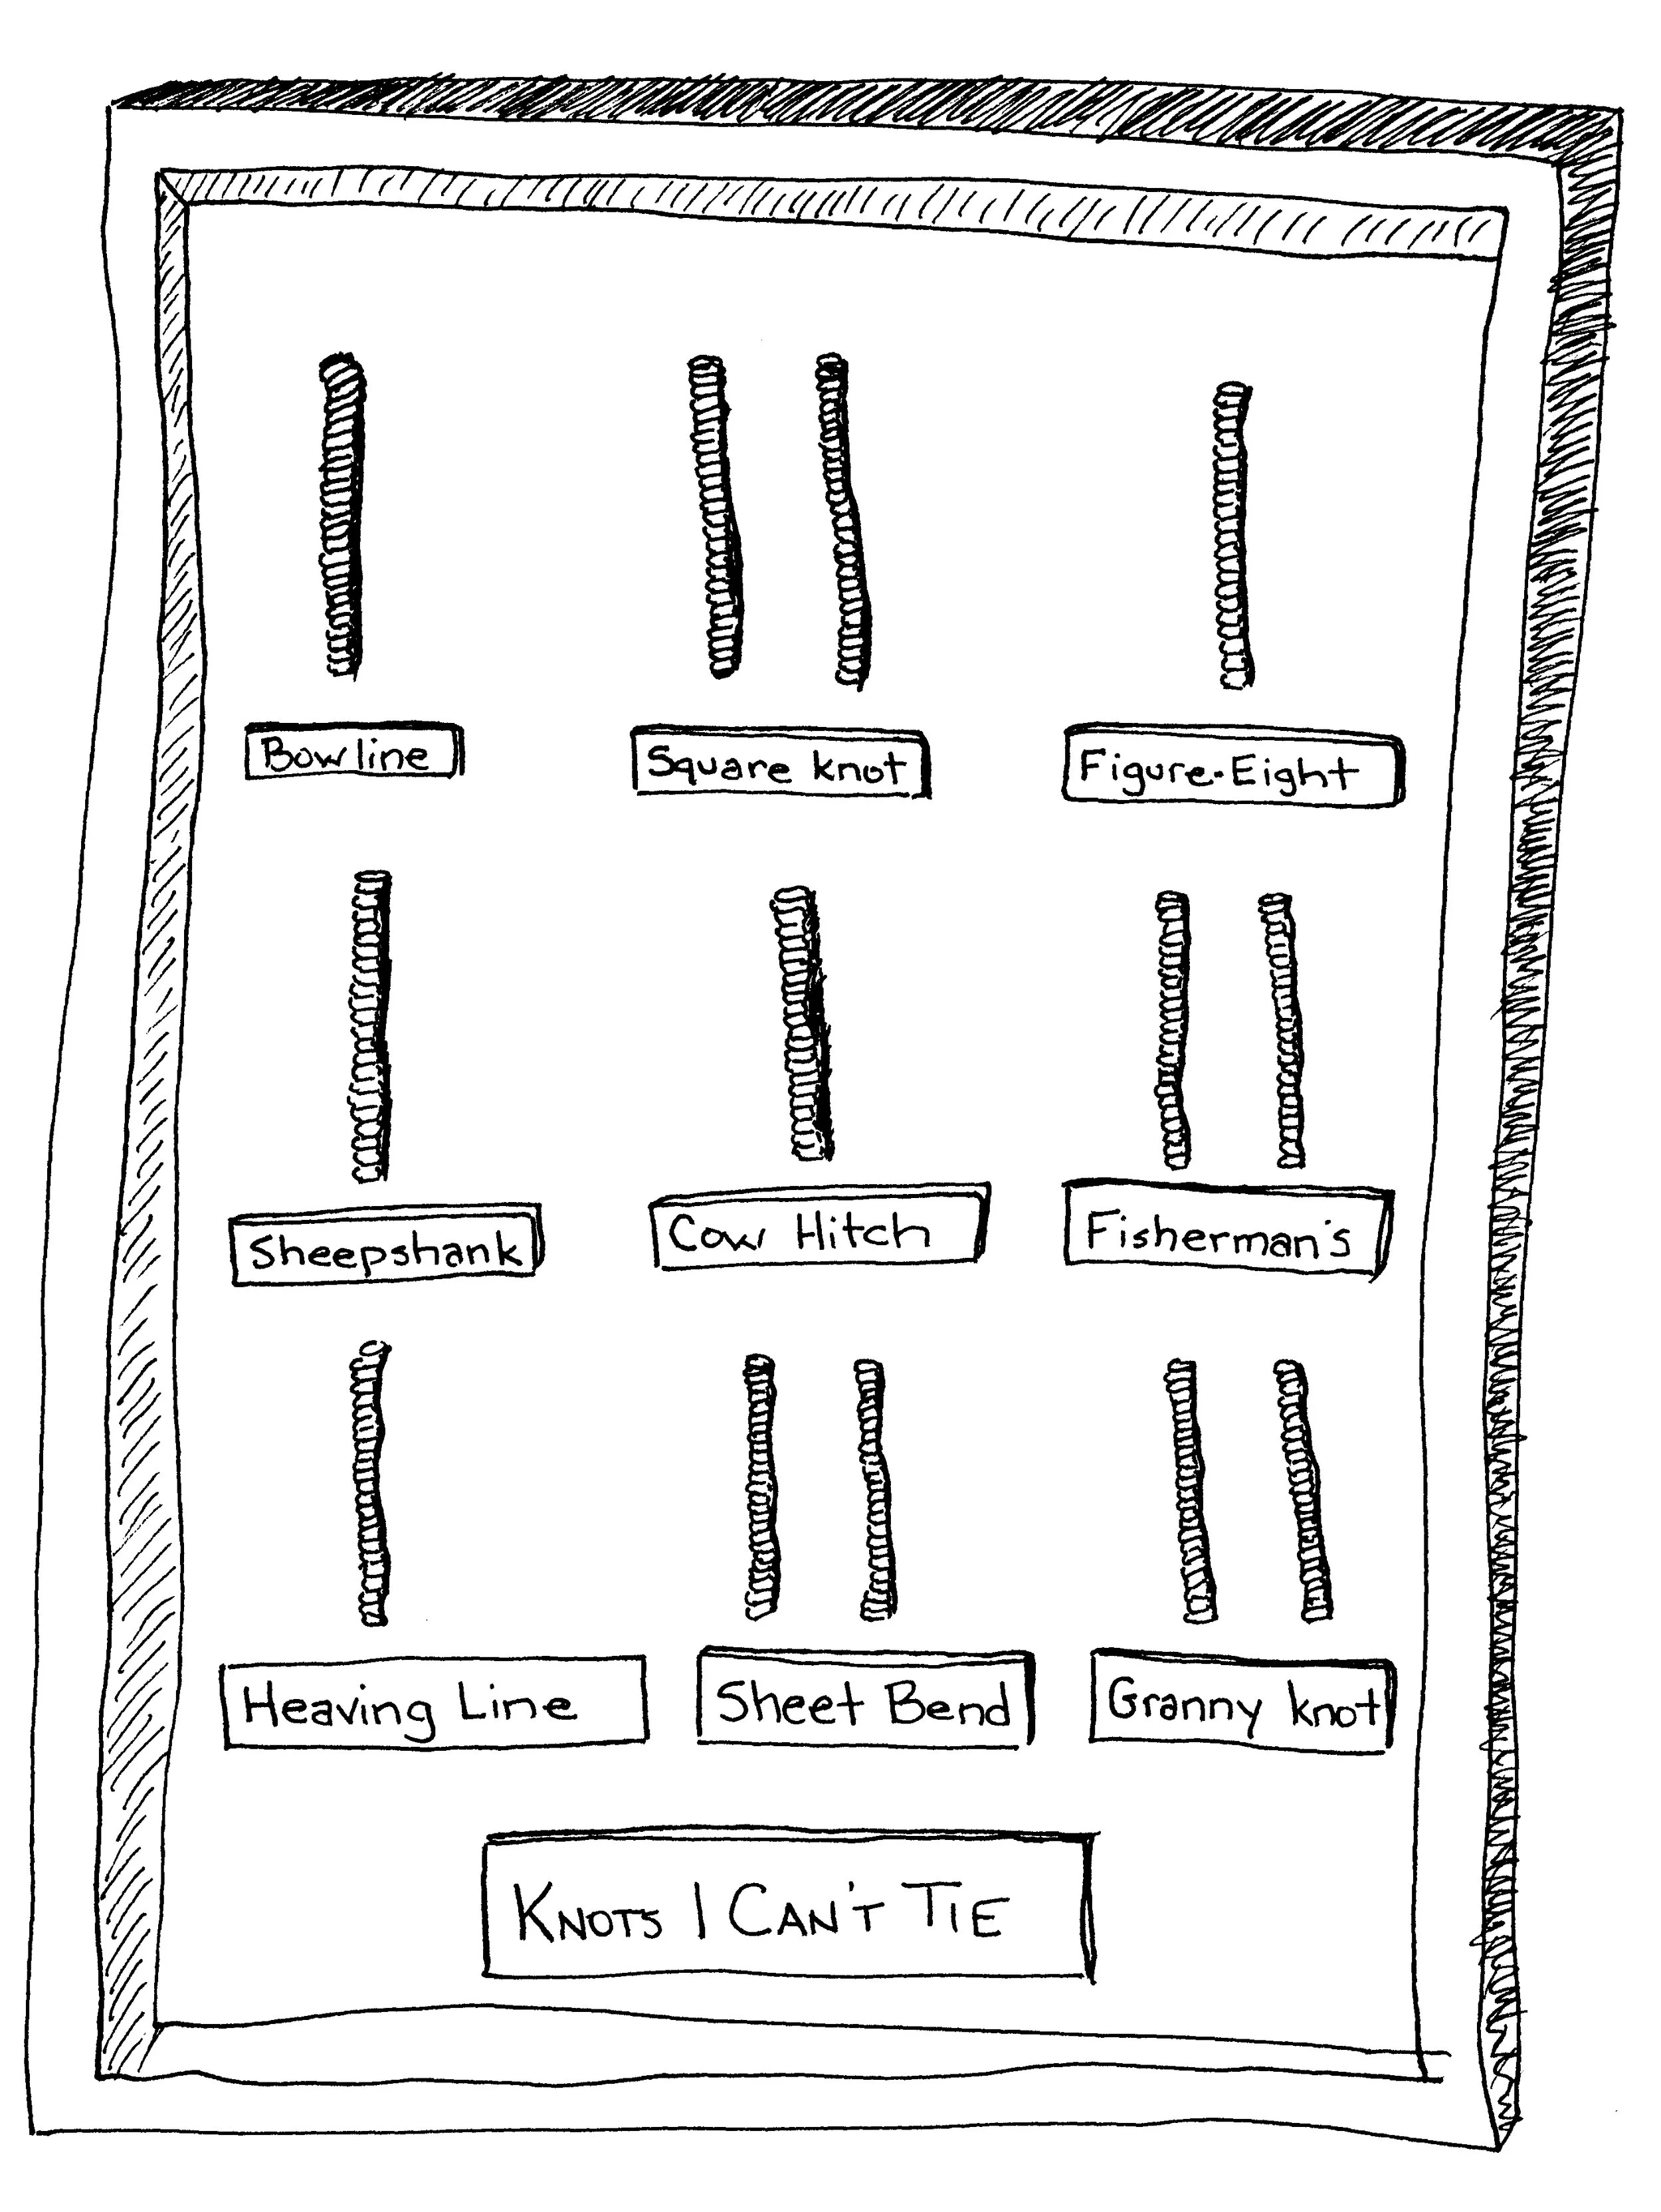 Bowline
Square knot
Figure-Eight
Sheepshank
Cow Hitch
Fisherman's
Heaving Line
Sheet Bend
Granny knot
KNOTS I CAN'T TIE